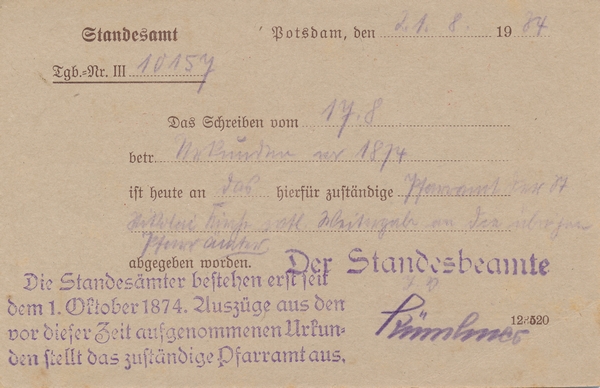 Standesamt
Potsdam, den 21. 8. 1934
Tgb.=Nr. III 10157
Das Schreiben vom 17.8
betr. Urkunden vor 1874
ist heute an das hierfür zuständige Pfarramt der St
Nikolai Kirche Weitergabe an die
Pfarrämter
abgegeben worden.
Der Standesbeamte
Die Standesämter bestehen erst seit
dem 1. Oktober 1874. Auszüge aus den
vor dieser Zeit aufgenommenen Urkun-
den stellt das zuständige Pfarramt aus.